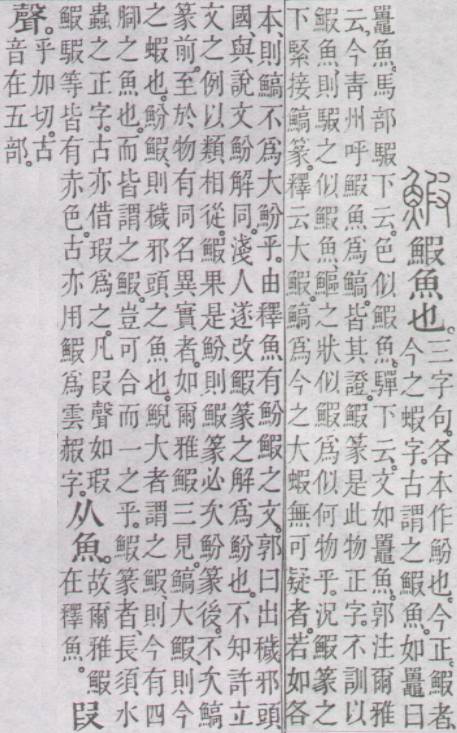 鰕鰕魚也。
三字句。各本作魵也。今正。鰕者、
今之蝦字。古謂之鰕魚。如鼉曰
鼉魚。馬部騢下云。色似鰕魚。驒下云。文如鼉魚。郭注爾雅
云。今靑州呼鰕魚爲鰝。皆其證。鰕篆是此物正字。不訓以
鰕魚、則騢之似鰕魚、鰸之狀似鰕爲似何物乎。況鰕篆之
下緊接鰝篆。釋云大鰕。鰝爲今之大蝦無可疑者。若如各
本、則鰝不爲大魵乎。由釋魚有魵鰕之文。郭曰出穢邪頭
國、與說文魵解同。淺人遂改鰕篆之解爲魵也。不知許立
文之例以類相從。鰕果是魵、則鰕篆必次魵篆後。不次鰝
篆前。至於物有同名異實者。如爾雅鰕三見。鰝大鰕、則今
之蝦也。魵鰕則穢邪頭之魚也。鯢大者謂之鰕、則今有四
腳之魚也。而皆謂之鰕。豈可合而一之乎。鰕篆者、長須水
蟲之正字。古亦借瑕爲之。凡叚聲如瑕
鰕騢等皆有赤色。古亦用鰕爲雲赮字。
从魚。
故爾雅鰕
在釋魚。
叚
聲。
乎加切。古
音在五部。